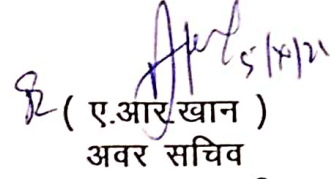 5/10/21
( ए.आर.खान )
अवर सचिव